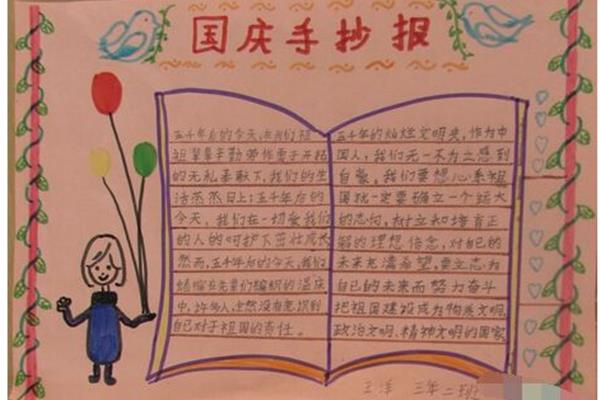 国庆手抄报
五千年后的今天,在我们祖
祖辈辈辛勤劳作勇于开拓
的无私奉献下,我们的生
活蒸蒸日上;五千年后的
今天,我们在一切爱我们
的人的呵护下茁壮成长
然而,五千年后的今天,我们
蜻蜓在先辈们编织的温床
中,许多人全然没有意识到
自己对于祖国的责任。
五千年的灿烂文明史,作为中
国人,我们无一不为之感到
自豪,我们要想心系祖
国就一定要确立一个远大
的志向,树立和培育正
确的理想信念,对自己的
未来充满希望,要立志为
自己的未来而努力奋斗
把祖国建设成为物质文明,
政治文明、精神文明的国家
王洋 三年二班